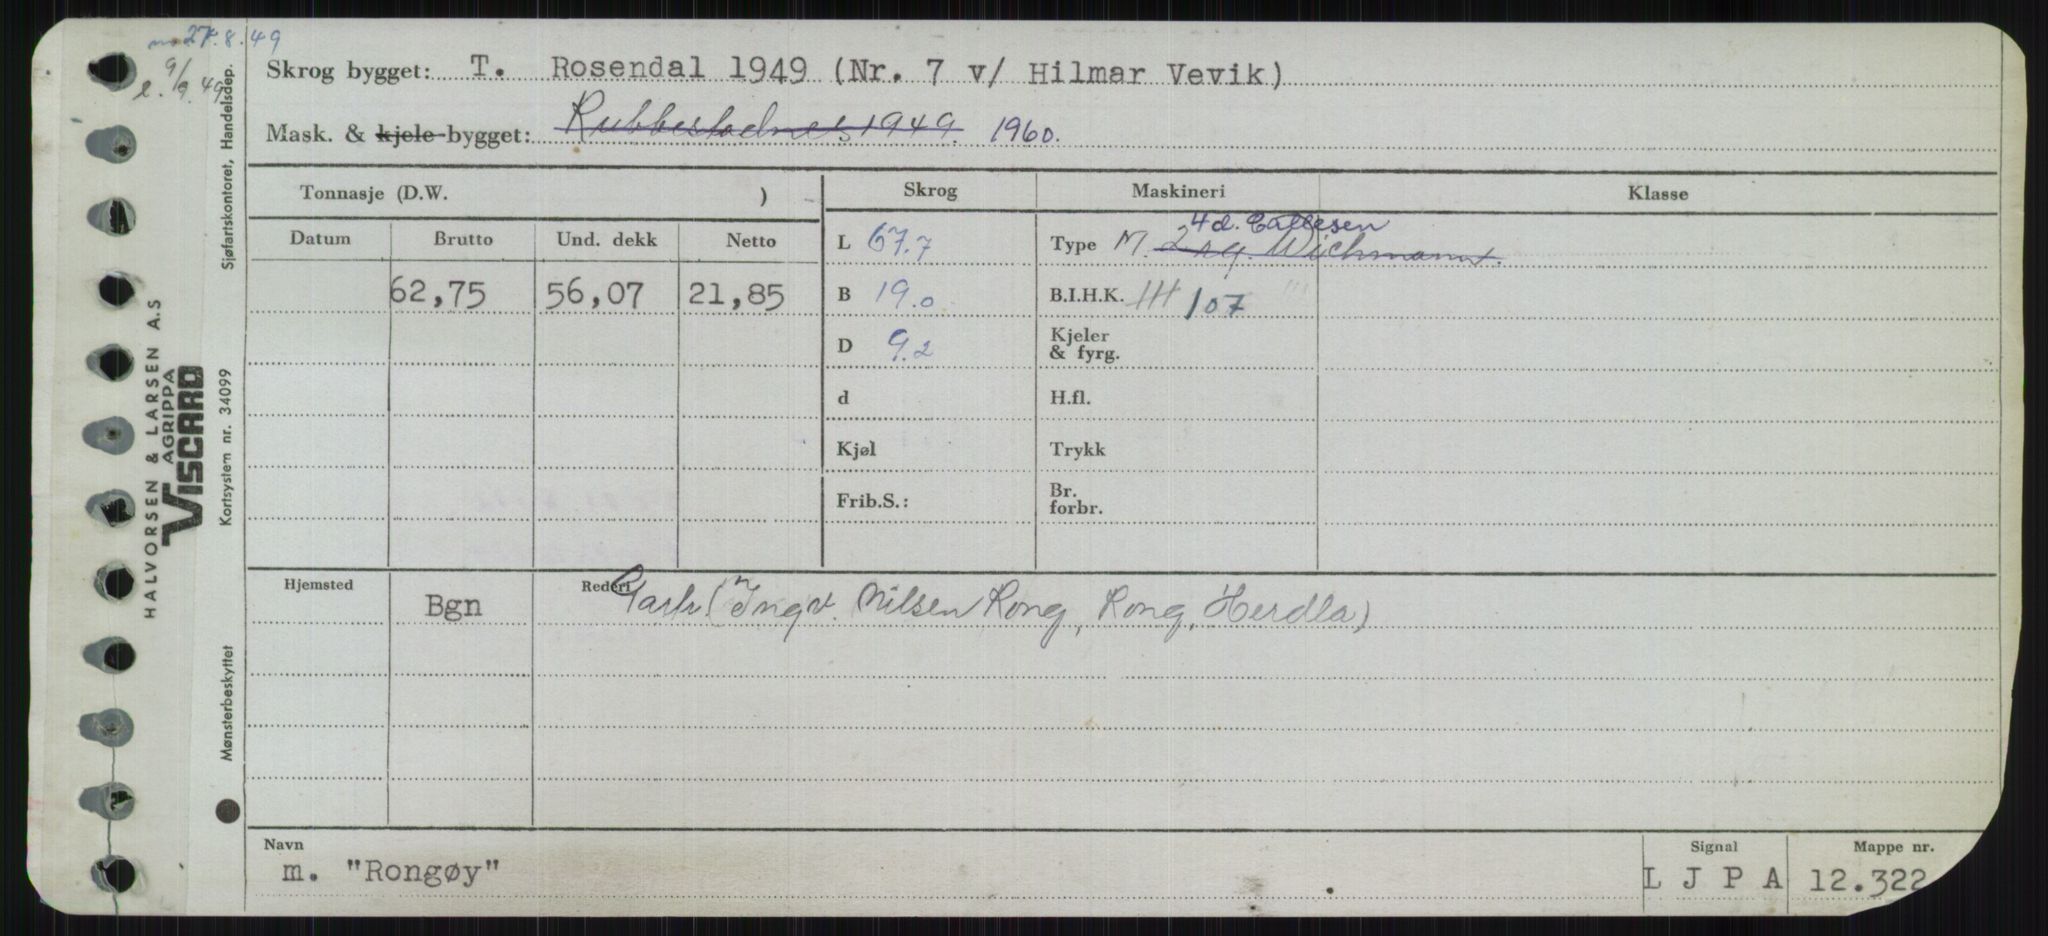 27.8.49
9/9.49
Skrog bygget: T. Rosendal 1949 (Nr. 7 v/ Hilmar Vevik)
Mask. & kjele-bygget: Rubbestadnes 1949. 1960.
Tonnasje (D.W. )
Skrog
Maskineri
Klasse
Datum
Brutto
Und. dekk
Netto
62,75
56,07
21,85
L 67.7
B 19.0
D 9.2
d
Kjøl
Frib.S.:
4d. Callesen
Type M. 2 syl. Wichmann.
B.I.H.K. 107
Kjeler
& fyrg.
H.fl.
Trykk
Br.
forbr.
Hjemsted
Bgn
Rederi
Partr. (Ingv. Nilsen Rong, Rong, Herdla)
Navn
m. "Rongøy"
Signal
L J P A
Mappe nr.
12.322
HALVORSEN & LARSEN A.S
AGRIPPA
VISCARD
Sjøfartskontoret, Handelsdep.
Kortsystem nr. 34099
Mønsterbeskyttet